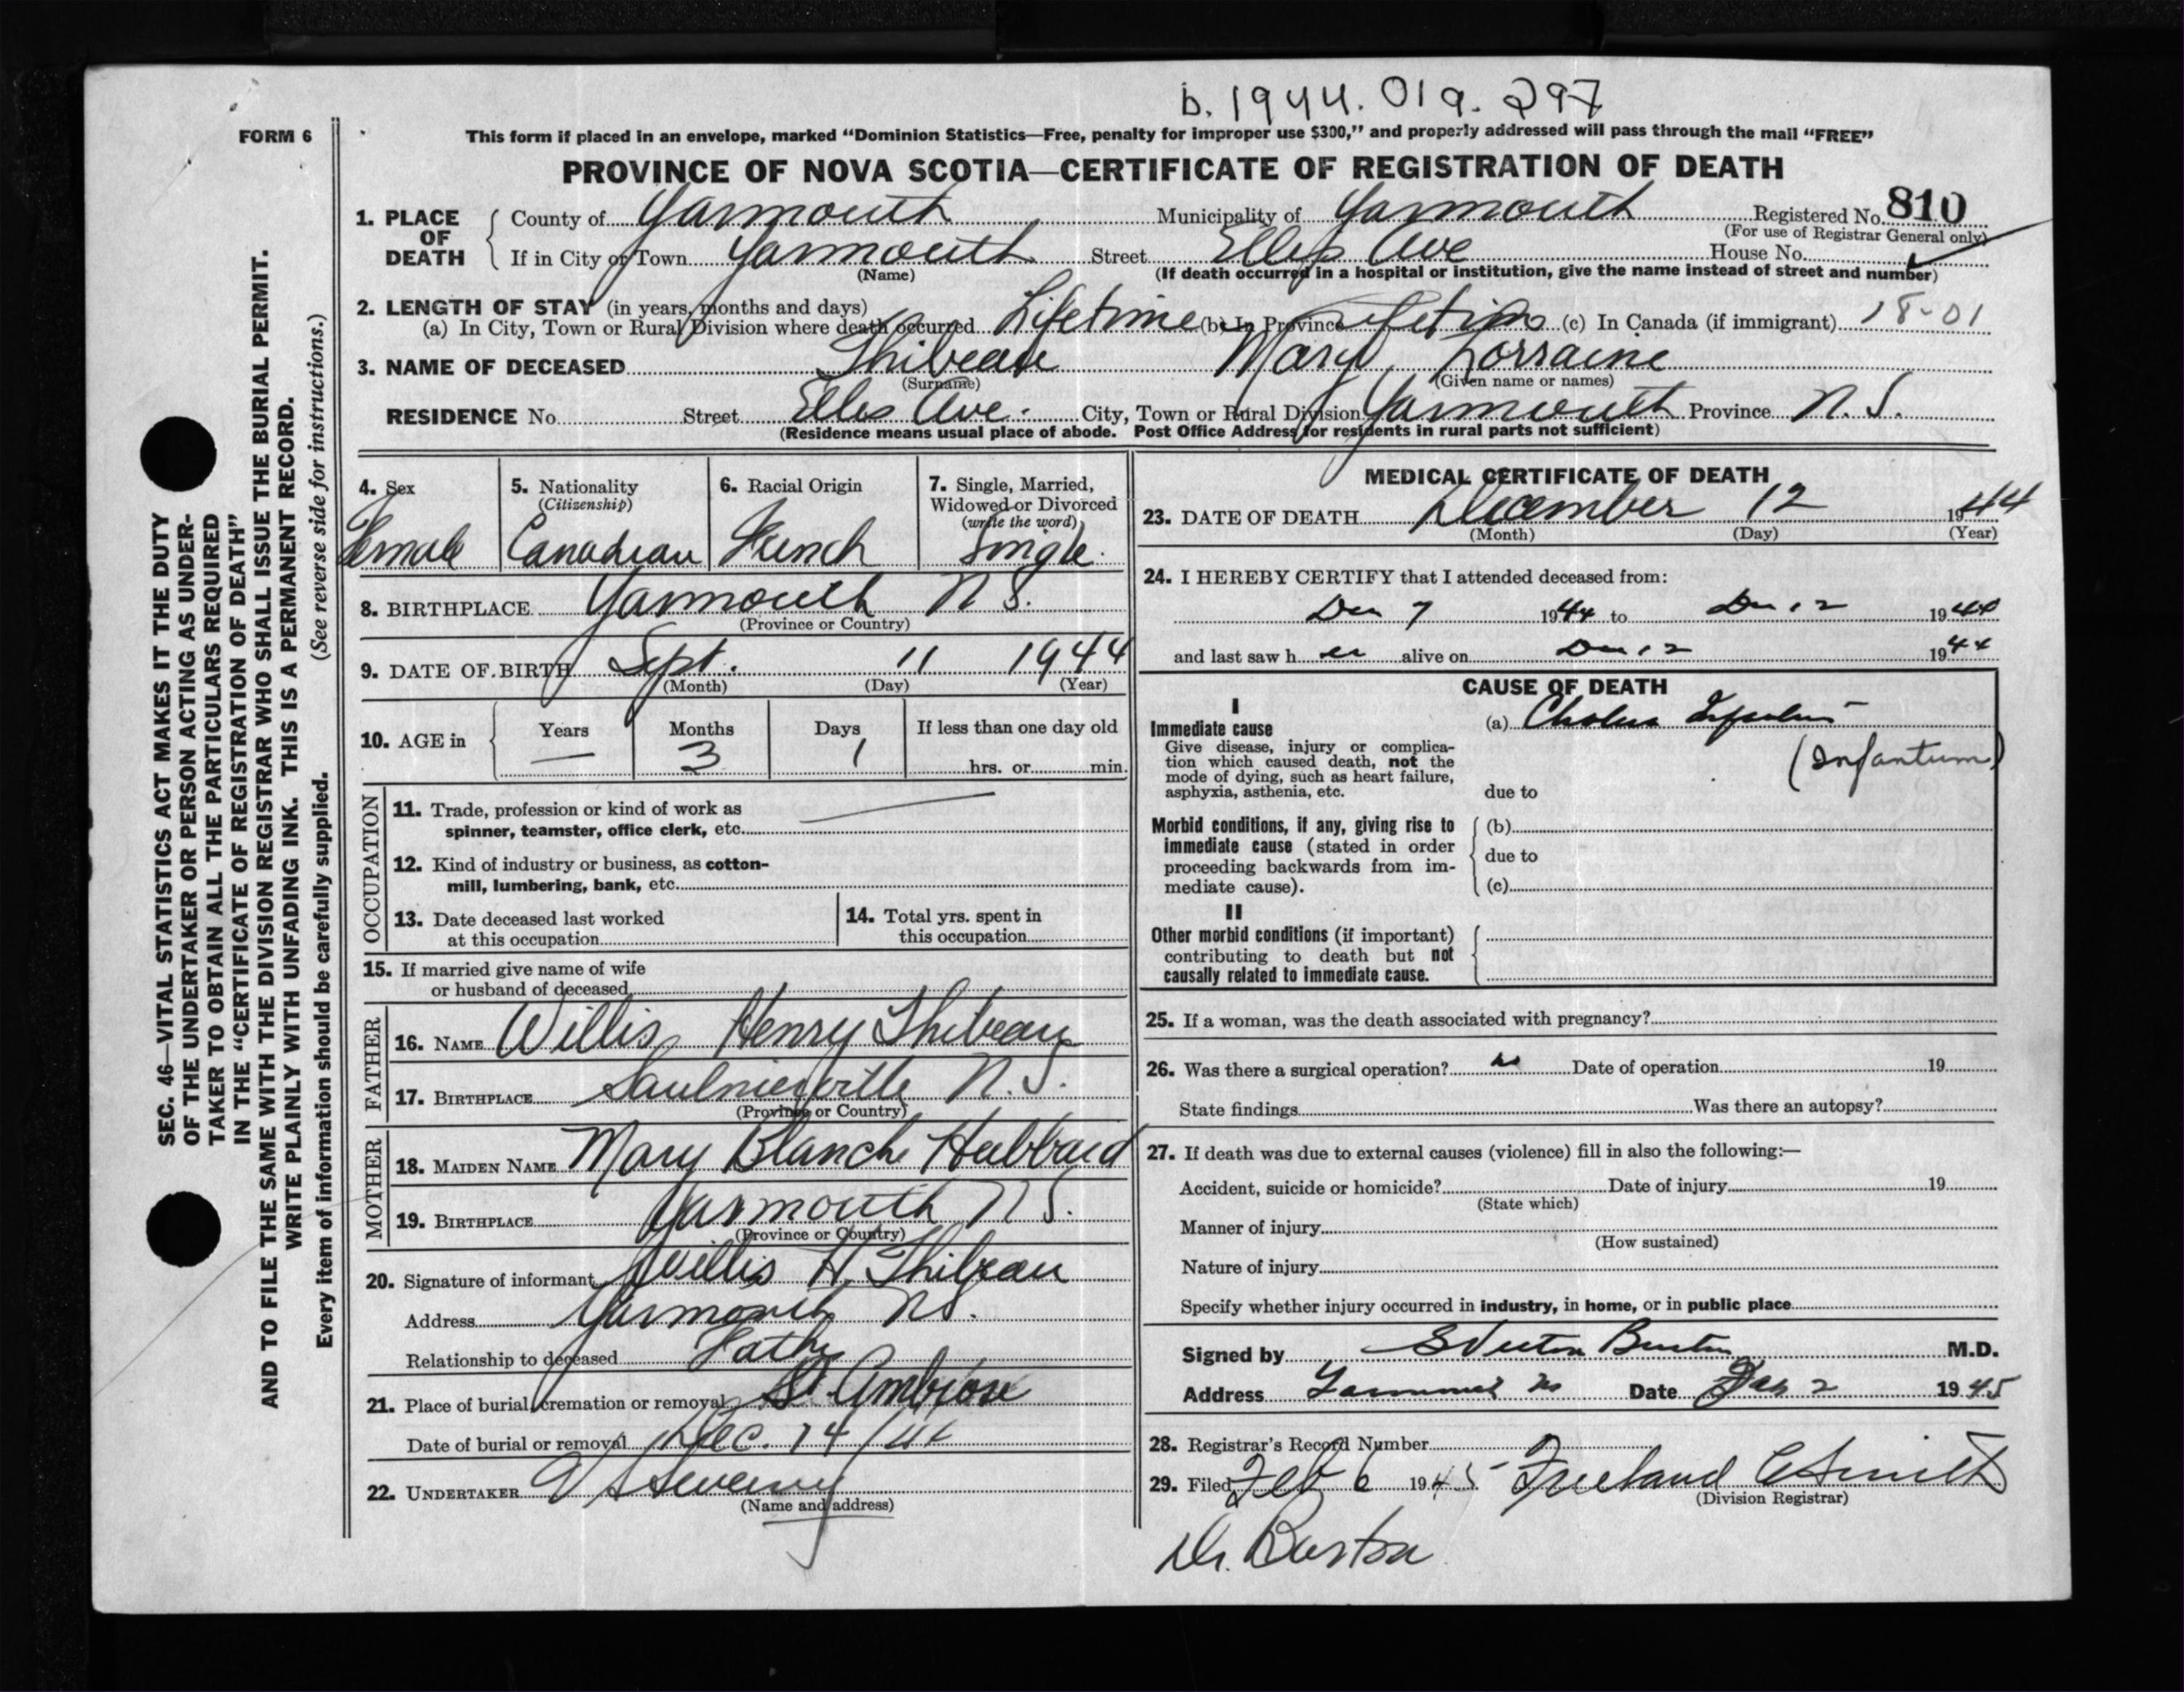 b. 1944. 019. 297
FORM 6
This form if placed in an envelope, marked “Dominion Statistics—Free, penalty for improper use $300,” and properly addressed will pass through the mail “FREE”
PROVINCE OF NOVA SCOTIA—CERTIFICATE OF REGISTRATION OF DEATH
1. PLACE OF DEATH County of Yarmouth Municipality of Yarmouth Registered No. 810
(For use of Registrar General only)
If in City or Town Yarmouth Street Ellis Ave House No.
(Name) (If death occurred in a hospital or institution, give the name instead of street and number)
2. LENGTH OF STAY (in years, months and days)
(a) In City, Town or Rural Division where death occurred Lifetime (b) In Province Lifetime (c) In Canada (if immigrant) 18-01
3. NAME OF DECEASED Thibeau Mary Lorraine
(Surname) (Given name or names)
RESIDENCE No. Street Ellis Ave. City, Town or Rural Division Yarmouth Province N.S.
(Residence means usual place of abode. Post Office Address for residents in rural parts not sufficient)
4. Sex Female
5. Nationality (Citizenship) Canadian
6. Racial Origin French
7. Single, Married, Widowed or Divorced (write the word) Single.
8. BIRTHPLACE Yarmouth N S.
(Province or Country)
9. DATE OF BIRTH Sept. 11 1944
(Month) (Day) (Year)
10. AGE in Years — Months 3 Days 1 If less than one day old hrs. or min.
OCCUPATION
11. Trade, profession or kind of work as spinner, teamster, office clerk, etc. —
12. Kind of industry or business, as cotton-mill, lumbering, bank, etc.
13. Date deceased last worked at this occupation
14. Total yrs. spent in this occupation
15. If married give name of wife or husband of deceased
FATHER
16. NAME Willis Henry Thibeau
17. BIRTHPLACE Saulnierville N.S.
(Province or Country)
MOTHER
18. MAIDEN NAME Mary Blanche Hubbard
19. BIRTHPLACE Yarmouth N S.
(Province or Country)
20. Signature of informant Willis H. Thibeau
Address Yarmouth N.S.
Relationship to deceased Father
21. Place of burial, cremation or removal St. Ambrose
Date of burial or removal Dec. 14/44
22. UNDERTAKER V S Sweeny
(Name and address)
MEDICAL CERTIFICATE OF DEATH
23. DATE OF DEATH December 12 1944
(Month) (Day) (Year)
24. I HEREBY CERTIFY that I attended deceased from:
Dec 7 1944 to Dec 12 1944
and last saw her alive on Dec 12 1944
CAUSE OF DEATH
I
Immediate cause (a) Cholera
(Infantum)
Give disease, injury or complica-
tion which caused death, not the
mode of dying, such as heart failure,
asphyxia, asthenia, etc. due to
Morbid conditions, if any, giving rise to (b)
immediate cause (stated in order due to
proceeding backwards from im-
mediate cause). (c)
II
Other morbid conditions (if important)
contributing to death but not
causally related to immediate cause.
25. If a woman, was the death associated with pregnancy?
26. Was there a surgical operation? no Date of operation 19
State findings Was there an autopsy?
27. If death was due to external causes (violence) fill in also the following:—
Accident, suicide or homicide? Date of injury 19
(State which)
Manner of injury
(How sustained)
Nature of injury
Specify whether injury occurred in industry, in home, or in public place
Signed by Burton M.D.
Address Yarmouth NS Date Jan 2 1945
28. Registrar's Record Number
29. Filed Feb 6 1945 Freeland C Smith
(Division Registrar)
Dr. Burton
SEC. 46—VITAL STATISTICS ACT MAKES IT THE DUTY
OF THE UNDERTAKER OR PERSON ACTING AS UNDER-
TAKER TO OBTAIN ALL THE PARTICULARS REQUIRED
IN THE “CERTIFICATE OF REGISTRATION OF DEATH”
AND TO FILE THE SAME WITH THE DIVISION REGISTRAR WHO SHALL ISSUE THE BURIAL PERMIT.
WRITE PLAINLY WITH UNFADING INK. THIS IS A PERMANENT RECORD.
(See reverse side for instructions.)
Every item of information should be carefully supplied.